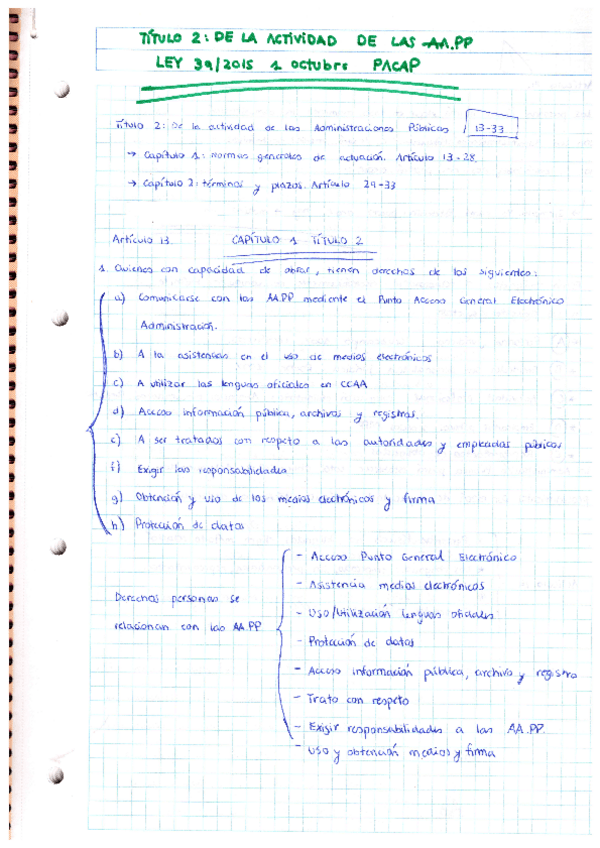 TÍTULO 2: DE LA ACTIVIDAD DE LAS AA.PP
LEY 39/2015 1 octubre PACAP
Título 2: De la actividad de las Administraciones Públicas / 13-33
→ Capítulo 1: Normas generales de actuación. Artículo 13-28.
→ Capítulo 2: términos y plazos. Artículo 29-33
Artículo 13. CAPÍTULO 1 TÍTULO 2
1. Quienes con capacidad de obrar, tienen derechos de los siguientes:
a) Comunicarse con las AA.PP mediante el Punto Acceso General Electrónico
Administración.
b) A la asistencias en el uso de medios electrónicos
c) A utilizar las lenguas oficiales en CCAA
d) Acceso información pública, archivos y registros.
e) A ser tratados con respeto a las autoridades y empleados públicos
f) Exigir las responsabilidades
g) Obtención y uso de los medios electrónicos y firma
h) Protección de datos
Derechos personas se
relacionan con las AA.PP
- Acceso Punto General Electrónico
- Asistencia medios electrónicos
- Uso/Utilización lenguas oficiales
- Protección de datos
- Acceso información pública, archivo y registro
- Trato con respeto
- Exigir responsabilidades a las AA.PP.
- Uso y obtención medios y firma